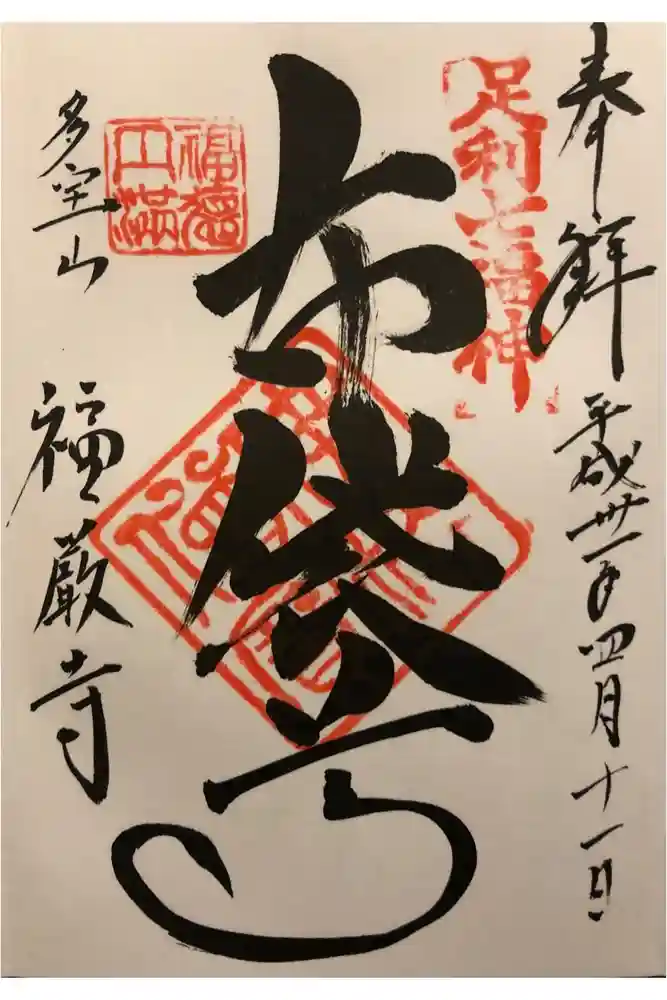 奉拝
平成卅一年四月十一日
足利七福神
布袋尊
福徳
円満
多宝山
福厳寺